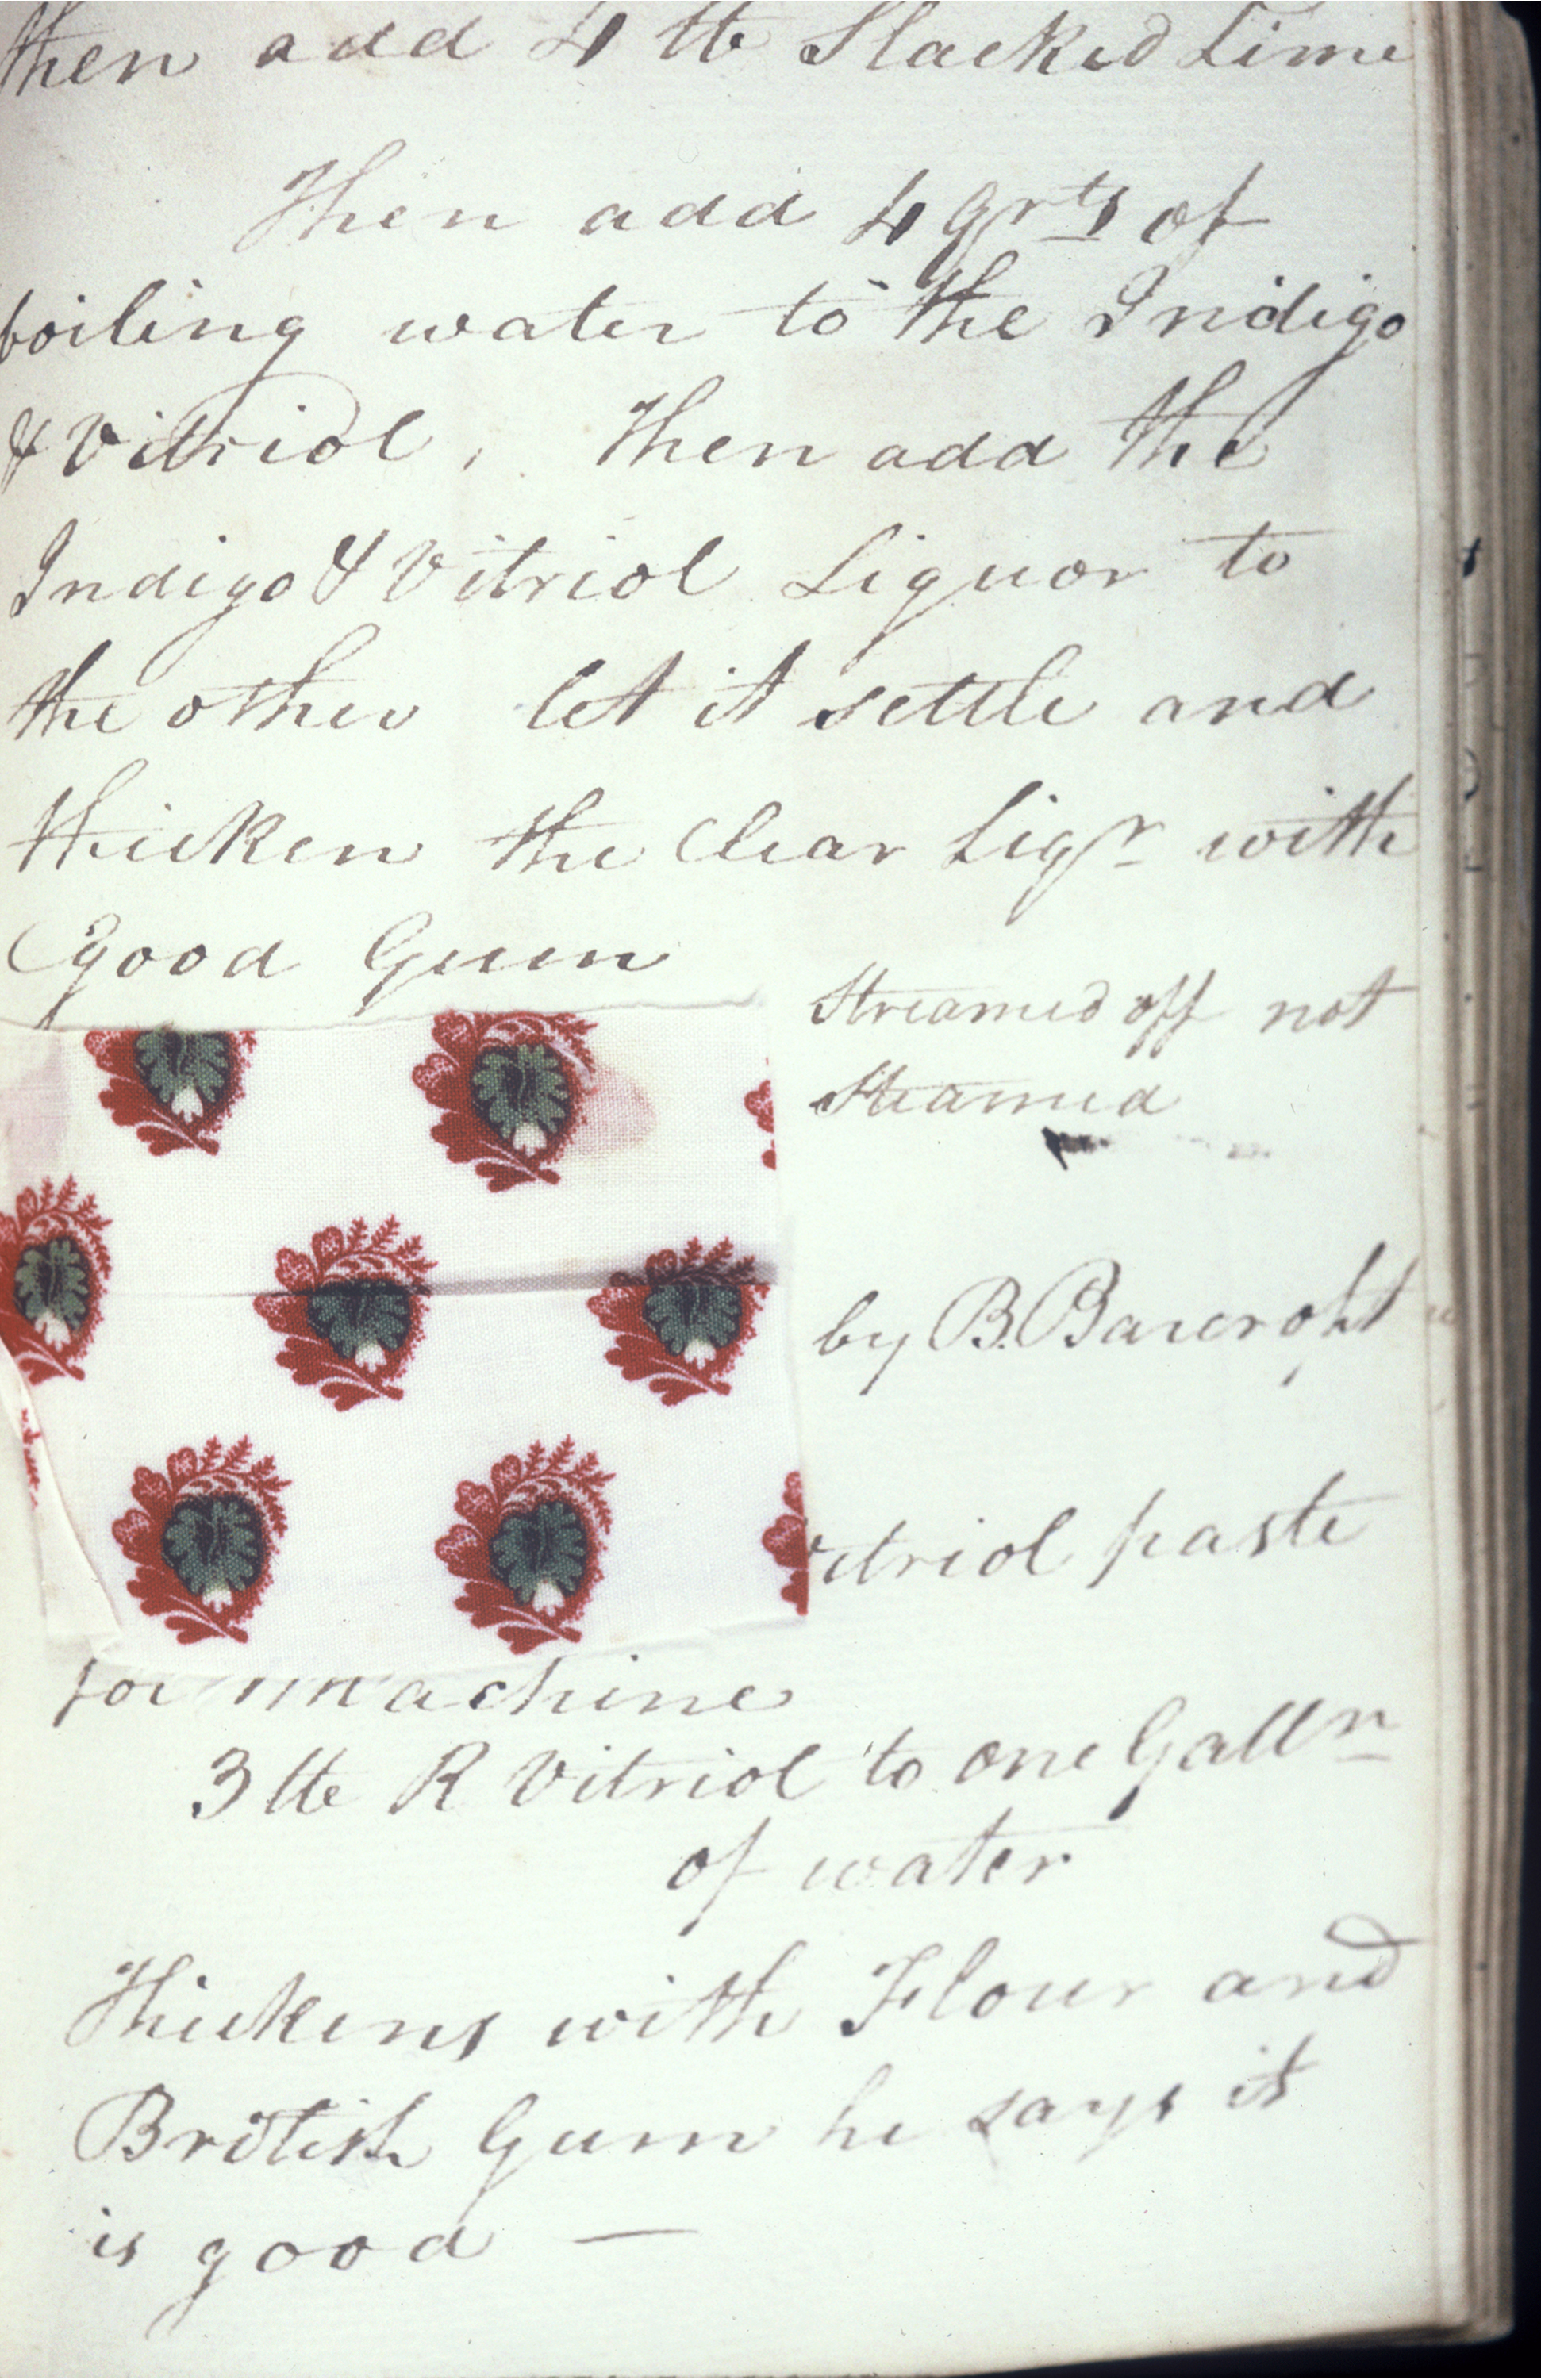 then add 4 lb Slacked Lime
Then add 4 qrts of
boiling water to the Indigo
& Vitriol, Then add the
Indigo & Vitriol Liquor to
the other let it settle and
thicken the Clear Liqr with
Good Gum
Streamed off not
Steamed
by B. Barcroft
itriol paste
for machine
3 lb R Vitriol to one Galln
of water
Thickens with Flour and
British Gum he says it
is good —